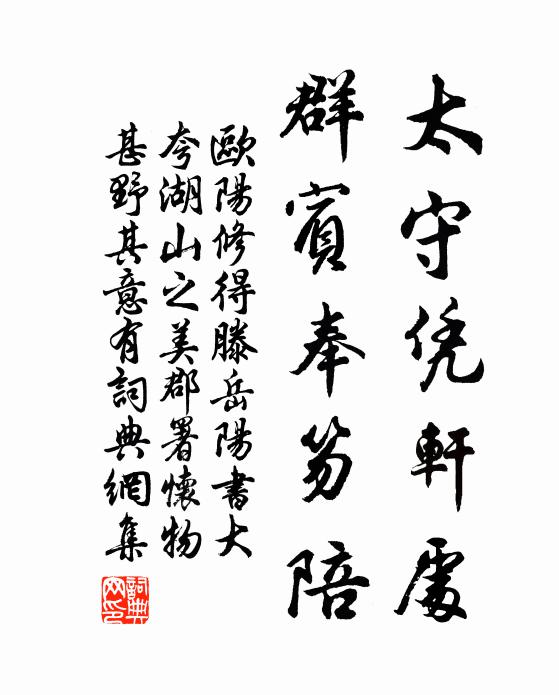 太守凭軒處
群賓奉笏陪
歐陽修得滕岳陽書大
夸湖山之美郡署懷物
甚野其意有詞典網集
詞典網印